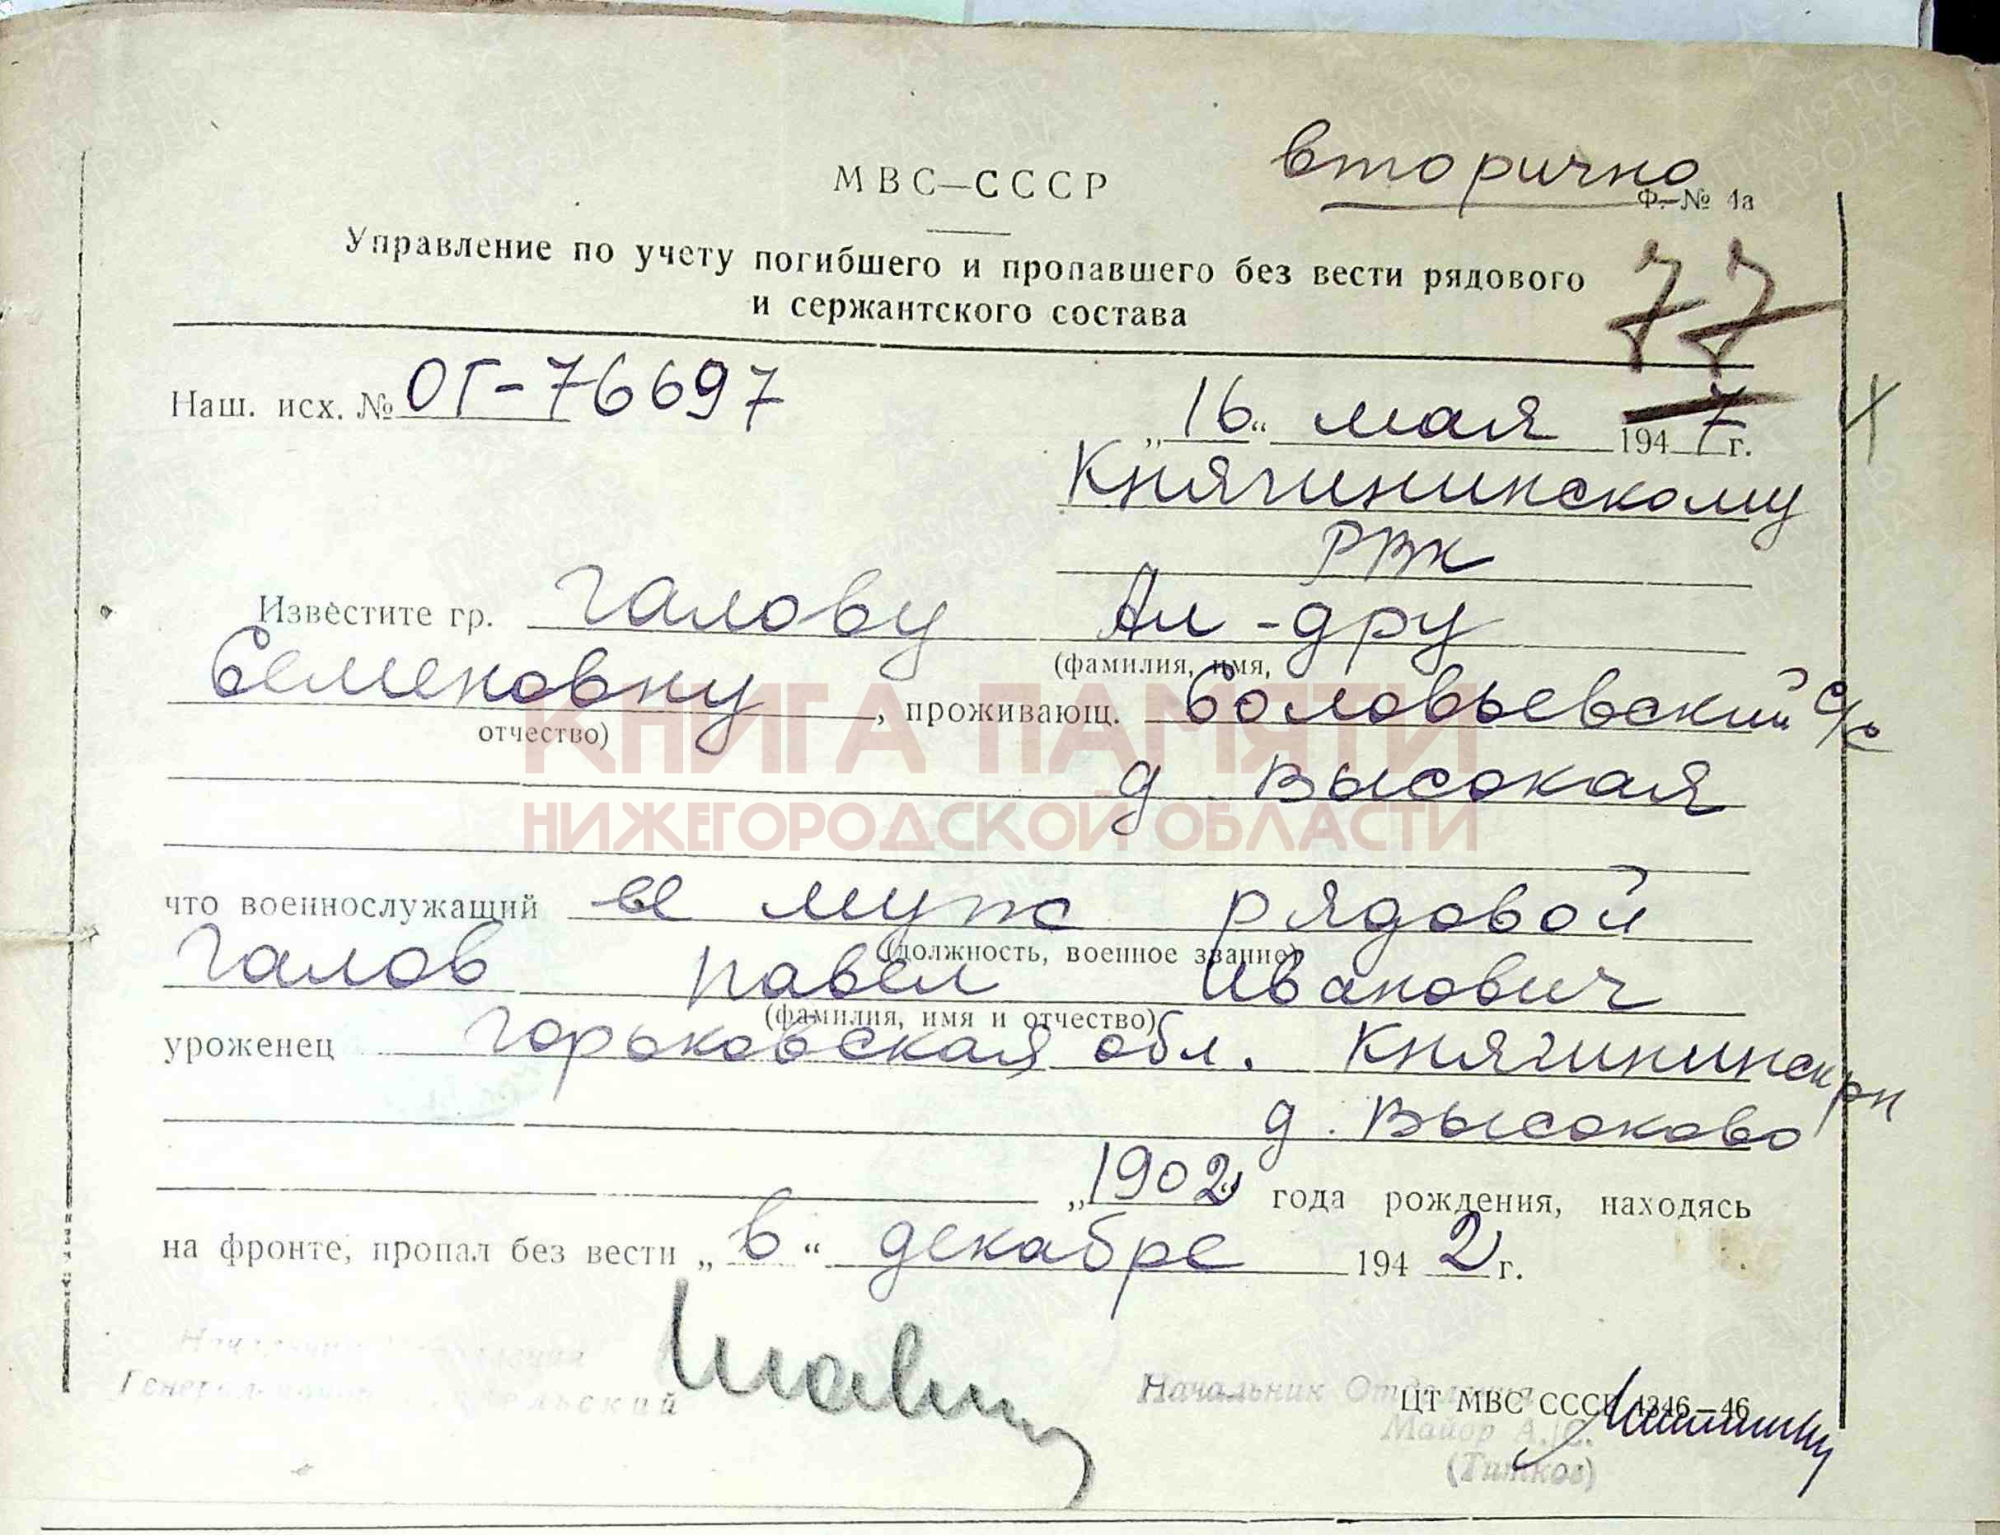 вторично
МВС—СССР
Ф.—№ 4а
Управление по учету погибшего и пропавшего без вести рядового
и сержантского состава
77
Наш. исх. № ОГ-76697
„16“ мая 1947 г.
Княгининскому
РВК
Известите гр. Галову Ал-дру
(фамилия, имя,
Семеновну, проживающ. Соловьевский с/с
отчество)
КНИГА ПАМЯТИ
д Высокая
НИЖЕГОРОДСКОЙ ОБЛАСТИ
что военнослужащий ее муж рядовой
(должность, военное звание)
Галов Павел Иванович
(фамилия, имя и отчество)
уроженец Горьковская обл. Княгининск рн
д. Высоково
„1902 года рождения, находясь
на фронте, пропал без вести „в“ декабре 1942 г.
Начальник Отделения
ЦТ МВС СССР 4346—46
Майор А. С.
(Титков)